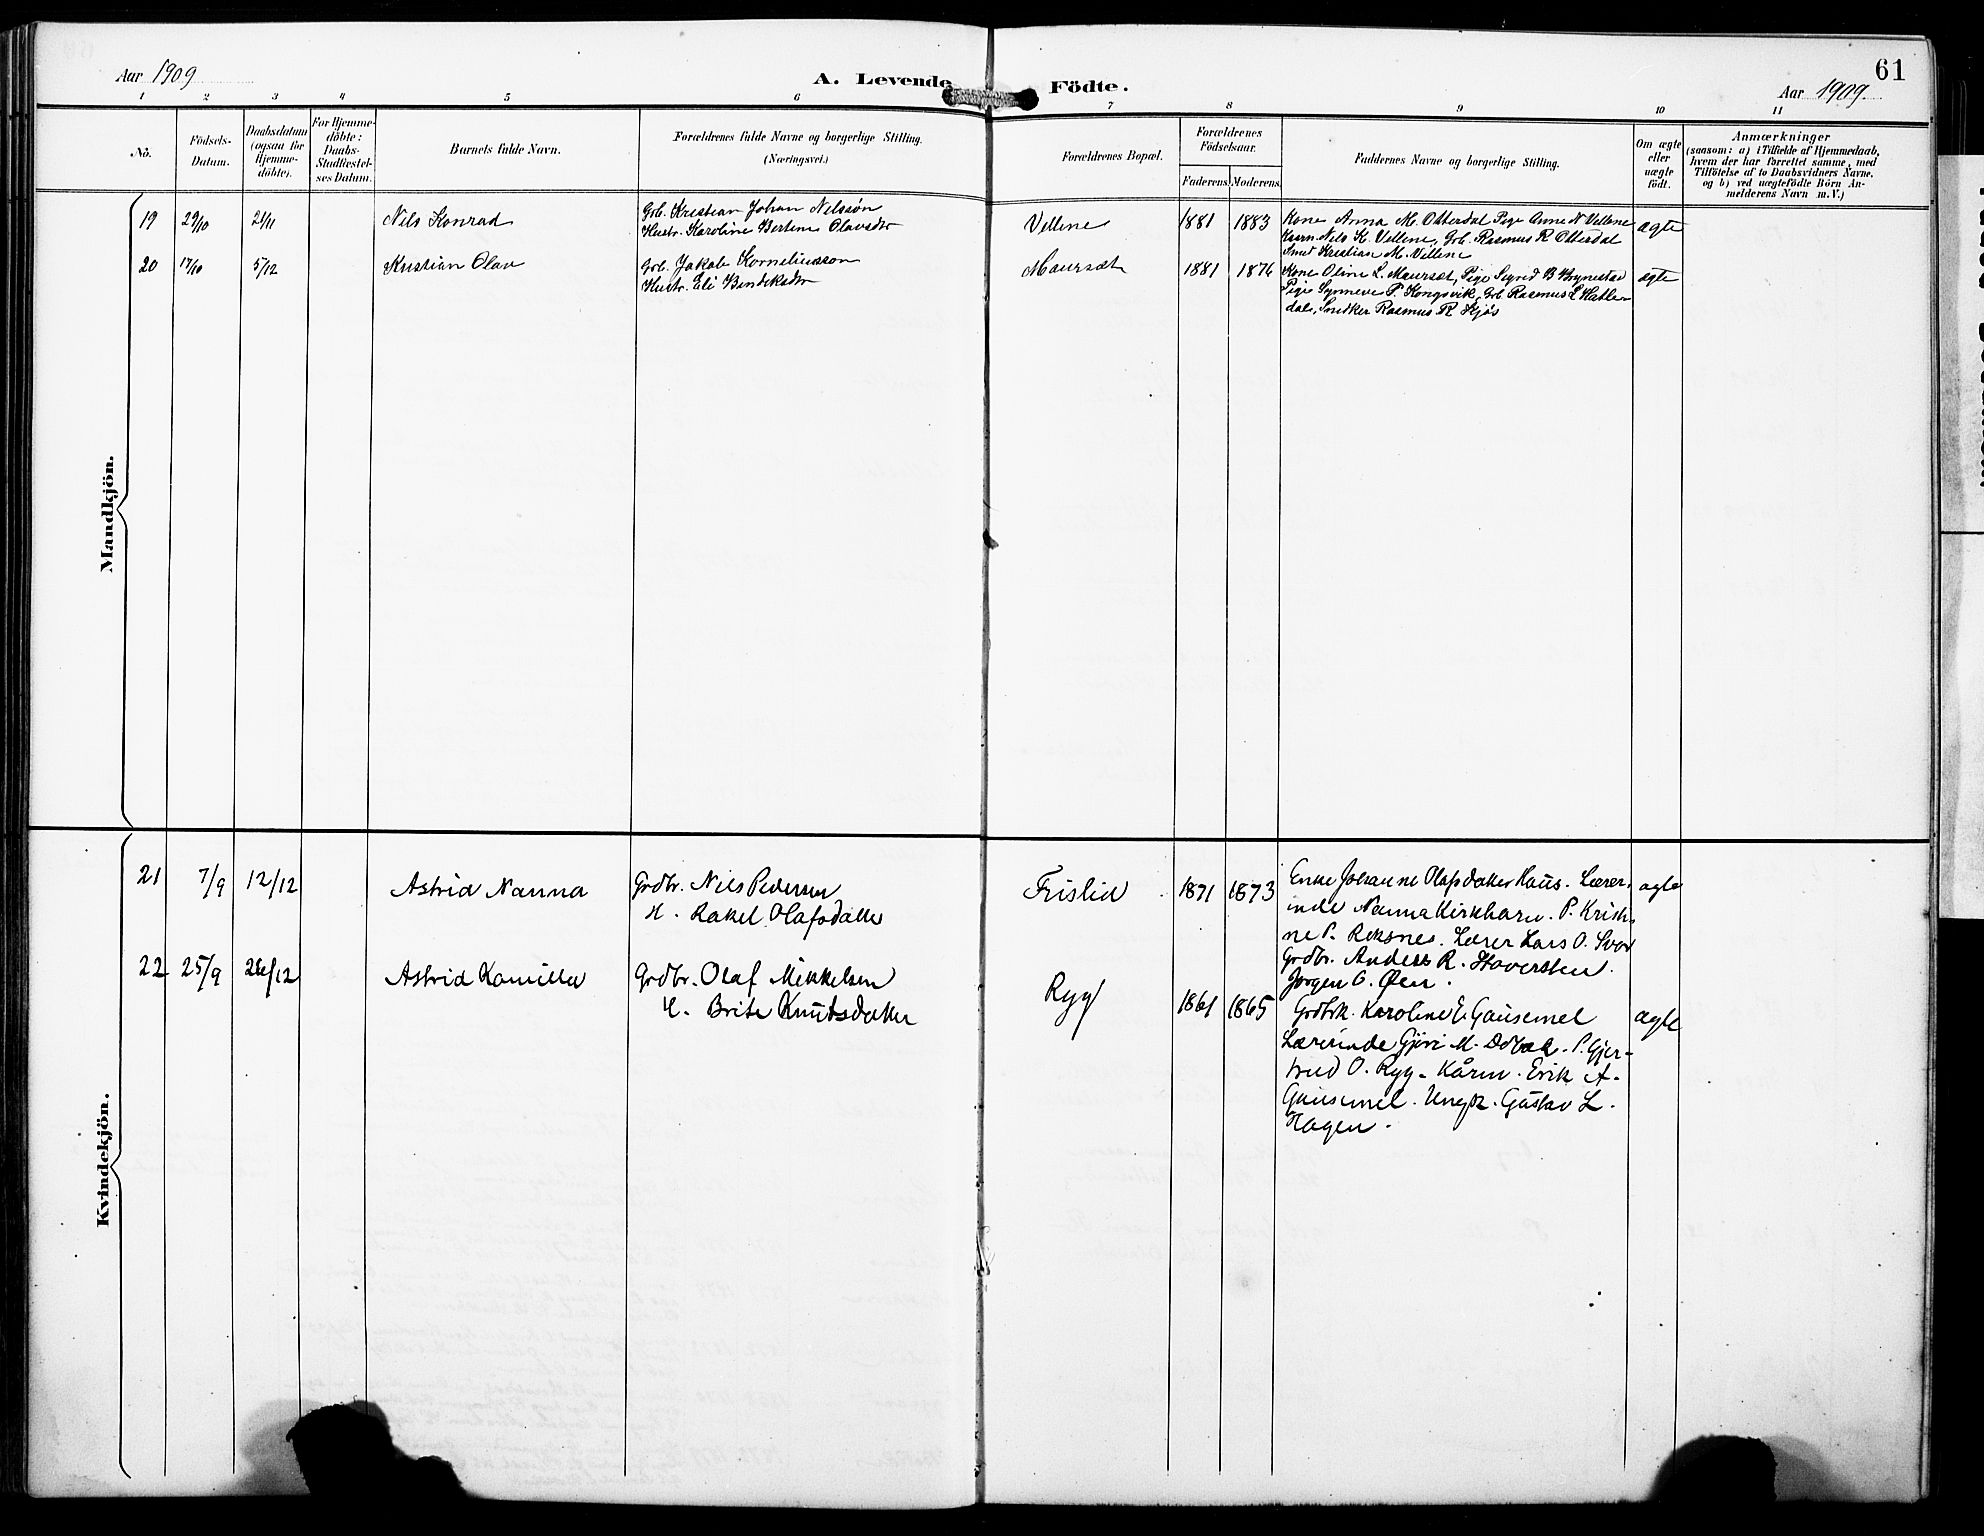 Aar 1909
A. Levende Födte.
61
Aar 1909.
1 2 3 4 5 6 7 8 9 10 11
No.
Födsels-
Datum.
Daabsdatum
(ogsaa for
Hjemme-
döbte).
For Hjemme-
döbte:
Daabs-
Stadfæstel-
ses Datum.
Barnets fulde Navn.
Forældrenes fulde Navne og borgerlige Stilling.
(Næringsvei.)
Forældrenes Bopæl.
Forældrenes
Födselsaar.
Faderens. Moderens.
Faddernes Navne og borgerlige Stilling.
Om ægte
eller
uægte
födt.
Anmærkninger
(saasom: a) i Tilfælde af Hjemmedaab,
hvem der har forrettet samme, med
Tilföielse af to Daabsvidners Navne,
og b) ved uægtefödte Börn An-
melderens Navn m.V.)
Mandkjön.
19 29/10 21/11 Nils Konrad
Grb. Kristian Johan Nilssön
Hustr. Karoline Bertine Olavsdtr
Vellene 1881 1883
Kone Anna M. Otterdal Pige Anne N Vellene
Kaarm. Nils K. Vellene, Grb. Rasmus R Otterdal
Smed Kristian M. Vellene
ægte
20 17/10 5/12 Kristian Olav
Grb. Jakob Korneliusson
Hustr. Eli Bendiksdtr
Maursæt 1881 1876
Kone Oline L. Maursæt, Pige Sigrid B Brynestad
Pige Synneve P. Kongsvik, Grb Rasmus L Hatle-
dal, Snedker Rasmus R Kjøs
ægte
Kvindekjön.
21 7/9 12/12 Astrid Nanna
Grdbr. Nils Pedersen
H. Rakel Olafsdatter
Frislid 1871 1873
Enke Johanne Olafsdatter Haus. Lærer-
inde Nanna Kirkhorn. P. Kristi-
ne P. Reksnes. Lærer Lars O. Svor
Grdbr. Anders R. Haversten.
Jørgen O. Øen.
ægte
22 25/9 26/12 Astrid Kamilla
Grdbr. Olaf Mikkelsen
H. Brite Knutsdatter
Ryg 1861 1865
Grdbrk. Karoline E. Gausemel
Lærerinde Gjøri M. P. Gjer-
trud O. Ryg. Kårm. Erik A.
Gausemel. Ungk. Gustav L.
Hagen.
ægte